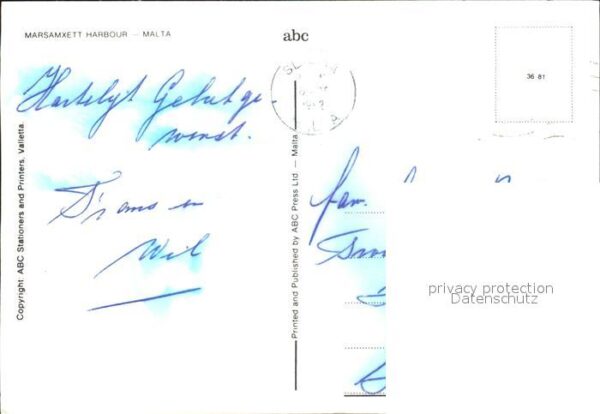 MARSAMXETT HARBOUR — MALTA
abc
36 81
Hartelyk Geluk ge-
wenst.
Frans en
Wil
fam.
Copyright: ABC Stationers and Printers, Valletta.
Printed and Published by ABC Press Ltd — Malta
privacy protection
Datenschutz